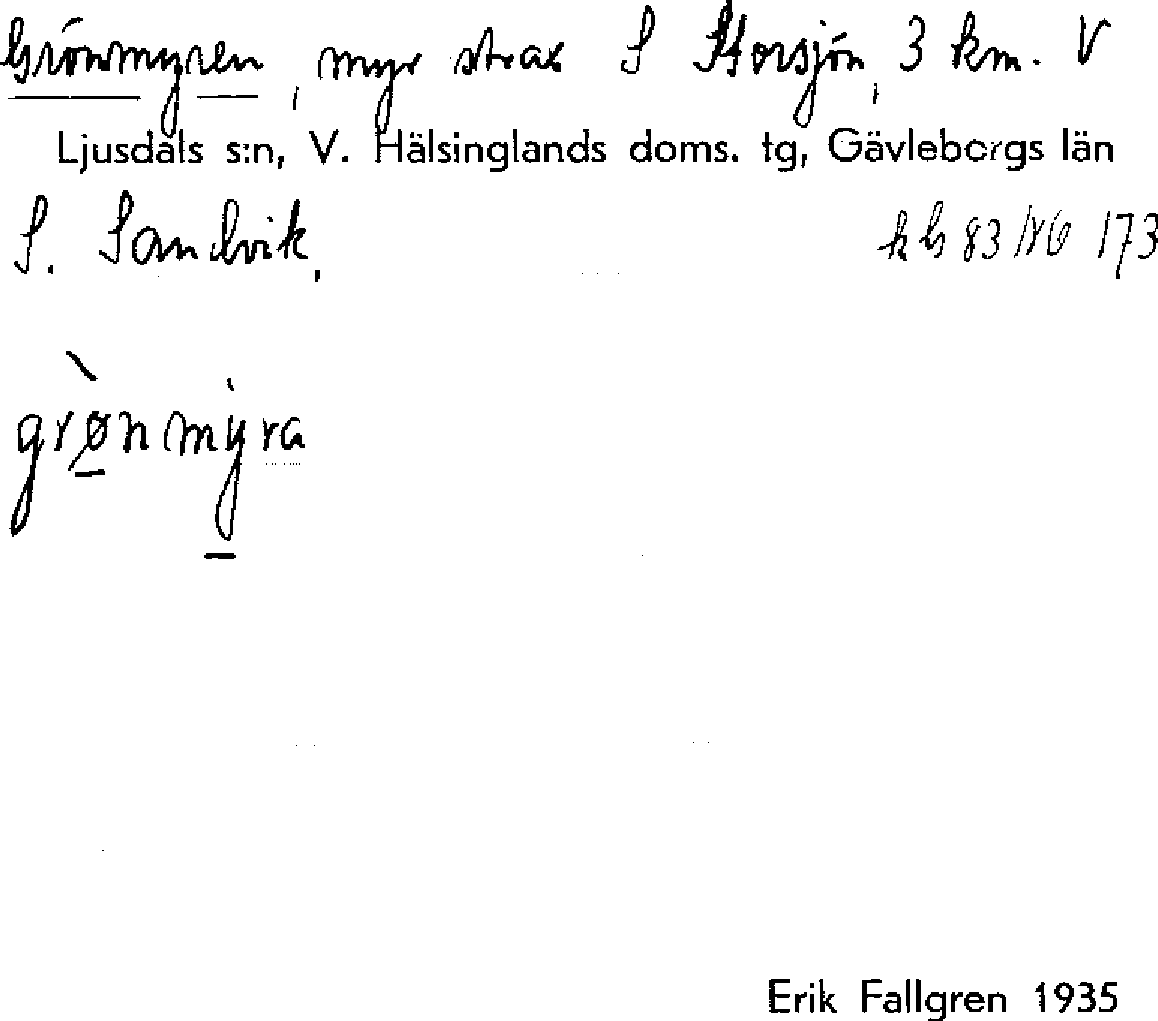 Grönmyren, myr strax S Storsjön, 3 km. V
Ljusdals s:n, V. Hälsinglands doms. tg, Gävleborgs län
S. Sandvik, 83 173
grønmyra
Erik Fallgren 1935